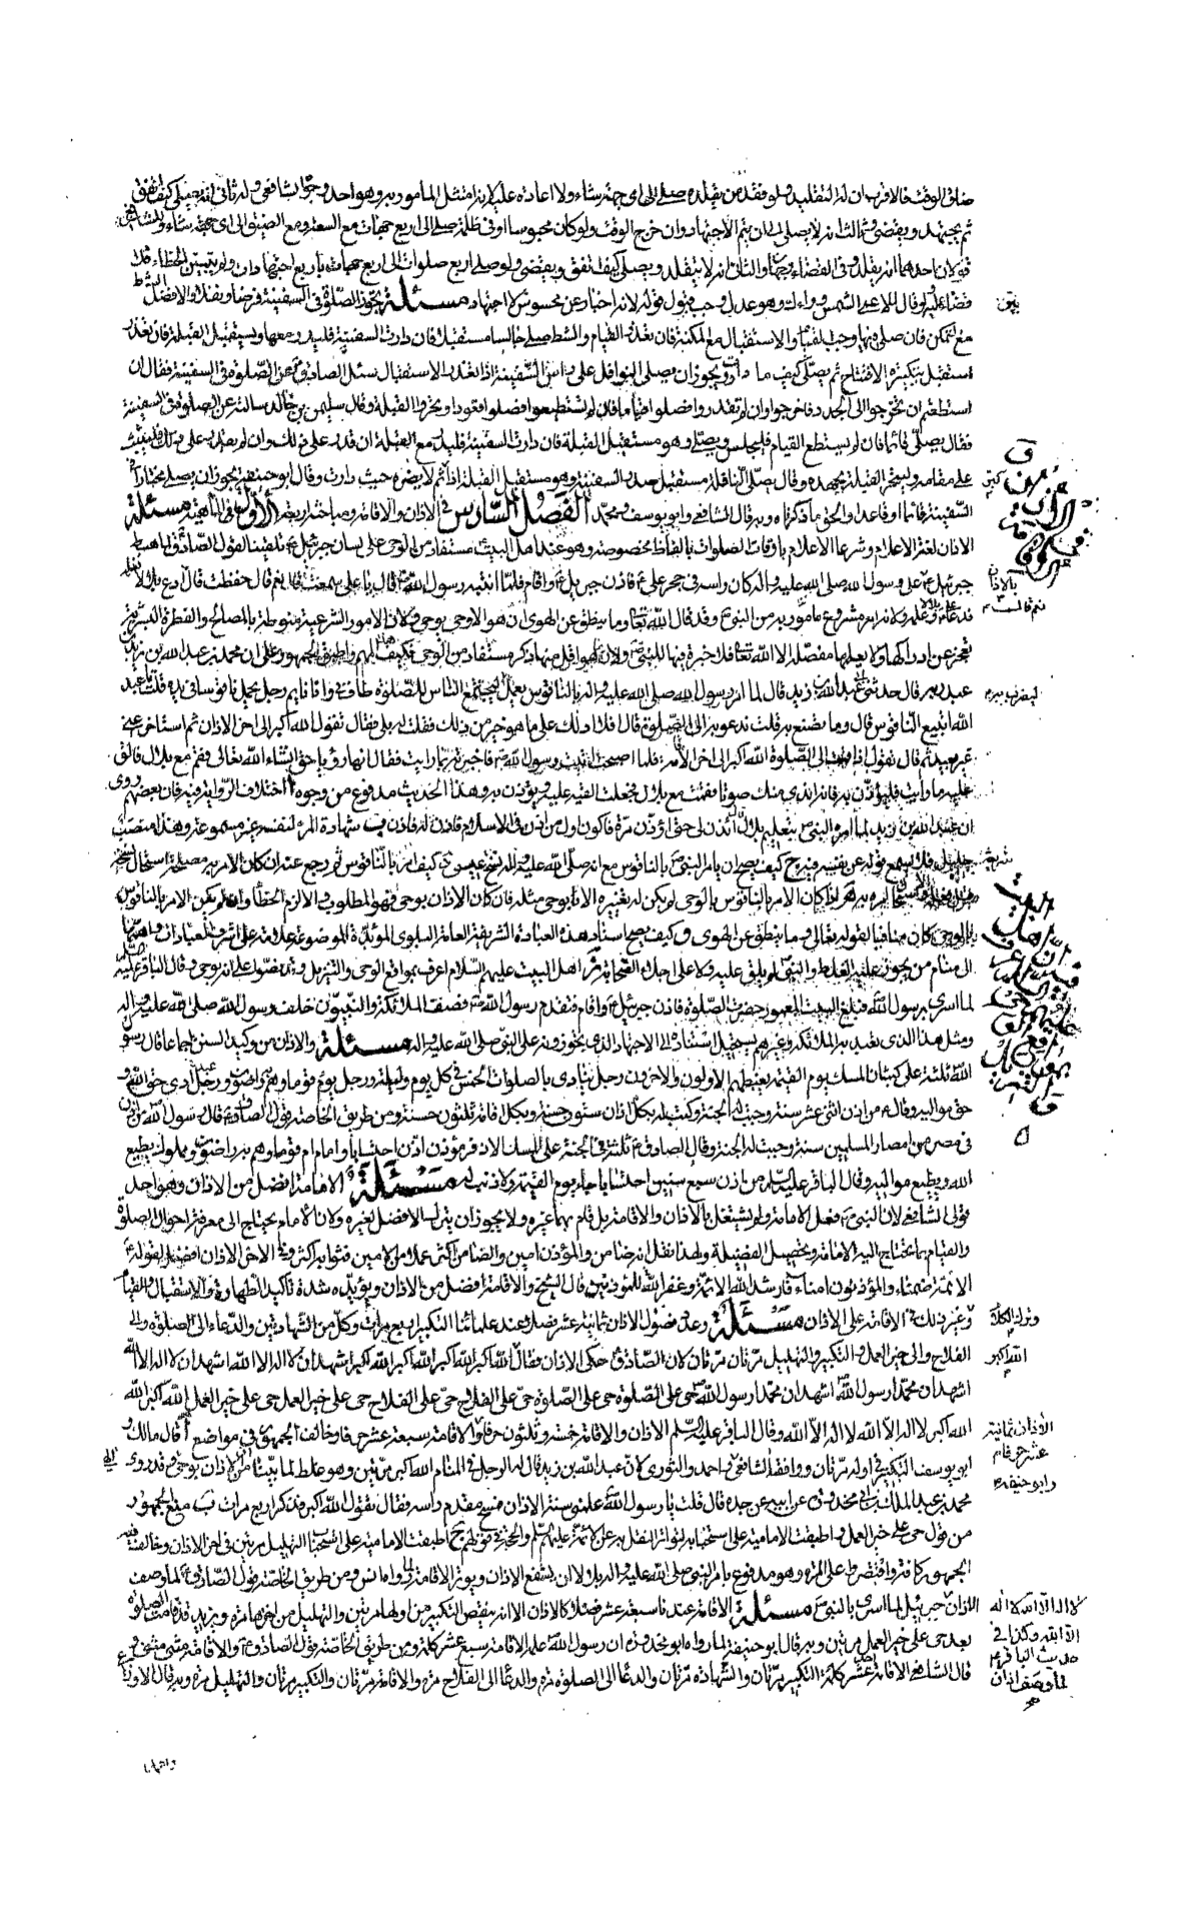 ضاق الوقت فالاقرب ان له التقليد ولو فقد من يقلده صلى الى اى جهة شاء ولا اعادة عليه لانه امتثل المأمور به وهو احد وجهى الشافعى وله ثان انه يصلى كيف اتفق
ثم يجتهد ويقضى وفى الثالث انه لا يصلى الى ان يتم الاجتهاد وان خرج الوقت ولو كان محبوسا او فى ظلمة صلى الى اربع جهات مع السعة ومع الضيق الى اى جهة شاء وللشافعى
قولان احدهما انه يقلد وفى القضاء وجهان والثانى انه لا يقلد ويصلى كيف اتفق ويقضى ولو صلى اربع صلوات الى اربع جهات باربع اجتهادات ولم يتبين الخطاء فلا
قضاء عليه ولو قال للاعمى الشمس وراءك وهو عدل وجب قبول قوله لانه اخبار عن محسوس لا اجتهاد مسئلة تجوز الصلوة فى السفينة فرضا ونفلا والافضل الشط
مع التمكن فان صلى فيها وجب القيام والاستقبال مع المكنة فان تعذر القيام والشط صلى جالسا مستقبلا فان دارت السفينة فليدر معها ويستقبل القبلة فان تعذر
استقبل بتكبيرة الافتتاح ثم يصلى كيف ما دارت ويجوز ان يصلى النوافل على راس السفينة اذا تعذر الاستقبال سئل الصادق عن الصلوة فى السفينة فقال ان
استطعتم ان تخرجوا الى الجدد فاخرجوا وان لم تقدروا فصلوا قياما فان لم تستطيعوا فصلوا قعودا وتحروا القبلة وقال سليمن بن خالد سالته عن الصلوة فى السفينة
فقال يصلى قائما فان لم يستطع القيام فليجلس ويصلى وهو مستقبل القبلة فان دارت السفينة فليدر مع القبلة ان قدر على ذلك وان لم يقدر على ذلك فليثبت
على مقامه وليتحر القبلة بجهده وقال يصلى النافلة مستقبل صدر السفينة وهو مستقبل القبلة اذا كبر ثم لا يضره حيث دارت وقال ابو حنيفة يجوز ان يصلى مختارا فى
السفينة قائما وقاعدا والحق ما ذكرناه وبه قال الشافعى وابو يوسف ومحمد الفصل السادس فى الاذان والاقامة ومباحثه اربعة الاول فى الماهية مسئلة
الاذان لغة الاعلام وشرعا الاعلام باوقات الصلوات بالفاظ مخصوصة وهو عند اهل البيت مستفاد من الوحى على لسان جبرئيل تلقينا لقول الصادق لما هبط
جبرئيل على رسول الله صلى الله عليه وآله كان راسه فى حجر على فاذن جبرئيل واقام فلما انتبه رسول الله قال يا على سمعت قال نعم قال حفظت قال ادع بلالا
فدعا بلالا فعلمه ولانه امر مشروع مامور به من النبى وقد قال الله تعالى وما ينطق عن الهوى ان هو الا وحى يوحى ولان الامور الشرعية منوطة بالمصالح والفطرة البشرية
تعجز عن ادراكها ولا يعلمها مفصلة الا الله تعالى فلا خيرة فيها للنبى ولان ما هو اقل منها ذكر مستفاد من الوحى فكيف هذا المهم واطبق الجمهور على ان محمد بن عبد الله بن زيد بن
عبد ربه قال حدثنى ابى عبد الله بن زيد قال لما امر رسول الله صلى الله عليه وآله بالناقوس يعمل ليجتمع الناس للصلوة طاف بى وانا نايم رجل يحمل ناقوسا فى يده فقلت يا عبد
الله اتبيع الناقوس قال وما تصنع به قلت ندعو به الى الصلوة قال افلا ادلك على ما هو خير من ذلك فقلت له بلى فقال تقول الله اكبر الى اخر الاذان ثم استاخر عنى
غير بعيد ثم قال تقول اذا قمت الى الصلوة الله اكبر الى اخر الاقامة فلما اصبحت اتيت رسول الله فاخبرته بما رايت فقال انها رؤيا حق انشاء الله تعالى فقم مع بلال فالق
عليه ما رايت فليؤذن به فانه اندى منك صوتا فقمت مع بلال فجعلت القيه عليه ويؤذن به وهذا الحديث مدفوع من وجوه ا اختلاف الرواية فيه فان بعضهم روى
ان عبد الله بن زيد لما امره النبى بتعليم بلال ائذن لى حتى اؤذن مرة فاكون اول من اذن فى الاسلام فاذن له فاذن ب شهادة المرء لنفسه غير مسموعة وهذا منصب
جليل فلا يسمع قوله عن نفسه فيه ج كيف يصح ان يامر النبى بالناقوس مع انه صلى الله عليه وآله نسخ شريعة عيسى د كيف امر بالناقوس ثم رجع عنه ان كان الامر به مصلحة استحال نسخه
قبل فعله والا استحال امره به ه اذا كان الامر بالناقوس بالوحى لم يكن له تغييره الا بوحى مثله فان كان الاذان بوحى فهو المطلوب والا لزم الخطأ وان لم يكن الامر بالناقوس
بالوحى كان منافيا لقوله تعالى وما ينطق عن الهوى و كيف يصح اسناد هذه العبادة الشريفة العامة البلوى المؤبدة الموضوعة علامة على اشرف العبادات واهمها
الى منام من يجوز عليه الغلط والنبى لم يلق عليه ولا على اجلاء الصحابة ز اهل البيت عليهم السلام اعرف بمواقع الوحى والتنزيل وقد نصوا على انه بوحى قال الباقر عليه السلام
لما اسرى برسول الله فبلغ البيت المعمور حضرت الصلوة فاذن جبرئيل واقام فتقدم رسول الله فصفت الملائكة والنبيون خلف رسول الله صلى الله عليه وآله
ومثل هذا الذى تعبد به الملائكة وغيرهم يستحيل استناده الى الاجتهاد الذى يجوزونه على النبى صلى الله عليه وآله مسئلة والاذان من وكيد السنن اجماعا قال رسول
الله ثلثة على كثبان المسك يوم القيمة يغبطهم الاولون والاخرون رجل ينادى بالصلوات الخمس فى كل يوم وليلة ورجل يؤم قوما وهم به راضون ورجل ادى حق الله و
حق مواليه وقال من اذن اثنى عشر سنة وجبت له الجنة وكتب له بكل اذان ستون حسنة وبكل اقامة ثلثون حسنة ومن طريق الخاصة قول الصادق قال رسول الله من اذن
فى مصر من امصار المسلمين سنة وجبت له الجنة وقال الصادق ثلثة فى الجنة على المسك الاذفر مؤذن اذن احتسابا وامام ام قوما وهم به راضون ومملوك يطيع
الله ويطيع مواليه وقال الباقر عليه السلم من اذن سبع سنين احتسابا جاء يوم القيمة ولا ذنب له مسئلة الامامة افضل من الاذان وهو احد
قولى الشافعى لان النبى فعل الامامة ولم يشتغل بالاذان والاقامة بل قام بهما غيره ولا يجوز ان يترك الافضل لغيره ولان الامام يحتاج الى معرفة احوال الصلوة
والقيام بما تحتاج اليه الامامة وتحصيل الفضيلة ولهذا نقل انه ضامن والمؤذن امين والضامن اكثر عملا من الامين فثوابه اكثر وفى الاخر الاذان افضل لقوله
الائمة ضمناء والمؤذنون امناء فارشد الله الائمة وغفر الله للمؤذنين قال الشيخ والاقامة افضل من الاذان ويؤيده شدة تاكيد الطهارة والاستقبال والقيام
وغير ذلك فى الاقامة على الاذان مسئلة وعدد فصول الاذان ثمانية عشر فصلا عند علمائنا التكبير اربع مرات وكل من الشهادتين والدعاء الى الصلوة والى
الفلاح والى خير العمل والتكبير والتهليل مرتان مرتان لان الصادق حكى الاذان فقال الله اكبر الله اكبر الله اكبر الله اكبر اشهد ان لا اله الا الله اشهد ان لا اله الا الله
اشهد ان محمدا رسول الله اشهد ان محمدا رسول الله حى على الصلوة حى على الصلوة حى على الفلاح حى على الفلاح حى على خير العمل حى على خير العمل الله اكبر الله
الله اكبر لا اله الا الله لا اله الا الله وقال الباقر عليه السلم الاذان والاقامة خمسة وثلثون حرفا والاقامة سبعة عشر حرفا وخالف الجمهور فى مواضع ا قال مالك و
ابو يوسف التكبير فى اوله مرتان ووافقنا الشافعى واحمد والثورى لان عبد الله بن زيد قال له الرجل فى المنام الله اكبر مرتين وهو غلط لما بينا من ان الاذان بوحى وقد روى
محمد بن عبد الملك بن ابى محذورة عن ابيه عن جده قال قلت يا رسول الله علمنى سنة الاذان فمسح مقدم راسه فقال تقول الله اكبر فذكر اربع مرات ب منع الجمهور
من قول حى على خير العمل واطبقت الامامية على استحبابه لتواتر النقل به عن الائمة عليهم السلم والحجة فى قولهم ج اطبقت الامامية على استحباب التهليل مرتين فى اخر الاذان وخالف فيه
الجمهور كافة واقتصروا على المرة وهو مدفوع بامر النبى صلى الله عليه وآله بلالا ان يشفع الاذان ويوتر الاقامة رواه انس ومن طريق الخاصة قول الصادق لما وصف
الاذان جبرئيل لما اسرى بالنبى مسئلة الاقامة عندنا سبعة عشر فصلا كالاذان الا انه ينقص التكبير من اولها مرتين والتهليل من اخرها مرة ويزيد قد قامت الصلوة
بعد حى على خير العمل مرتين وبه قال ابو حنيفة لما رواه ابو محذورة ان رسول الله علمه الاقامة سبع عشر كلمة ومن طريق الخاصة قول الصادق والاقامة مثنى مثنى و
قال الشافعى الاقامة احد عشر كلمة التكبير مرتان والشهادة مرتان والدعا الى الصلوة مرة والدعا الى الفلاح مرة والاقامة مرتان والتكبير مرتان والتهليل مرة وبه قال الاوزاعى
وترك الكلام
الله اكبر
الاذان ثمانية
عشر حرفا
وابو حنيفة
لا اله الا الله لا اله
الا الله وكذا فى
حديث الباقر
لما وصف اذان